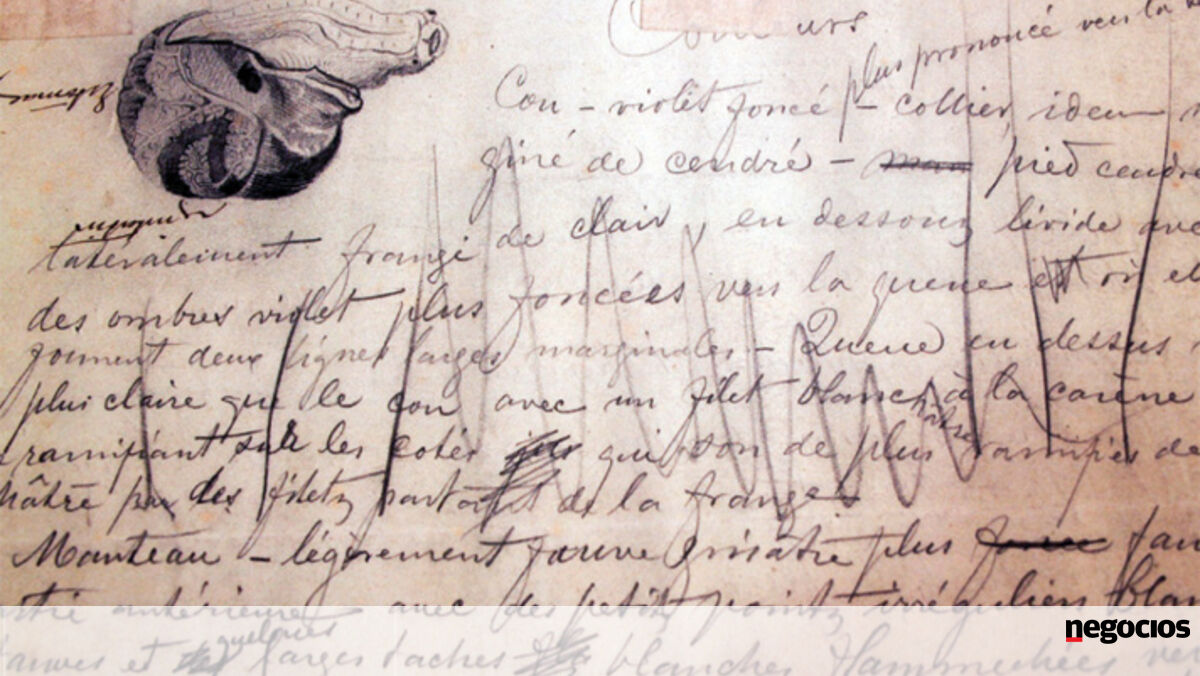 plus prononcé vers la
Cou – violet foncé – collier, idem
giné de cendré – pied cendré
latéralement frangé de clair, en dessous livide avec
des ombres violet plus foncées vers la queue et
forment deux lignes larges marginales – Queue en dessus
plus claire que le cou avec un filet blanchâtre à la carène
ramifiant sur les cotés qui son de plus ramifiés de
hâtre par des filets partant de la frange –
Manteau – légèrement fauve grisâtre plus
antérieure avec des petits points irréguliers blan
quelques
fauves et larges taches blanches flammechées ver
negocios